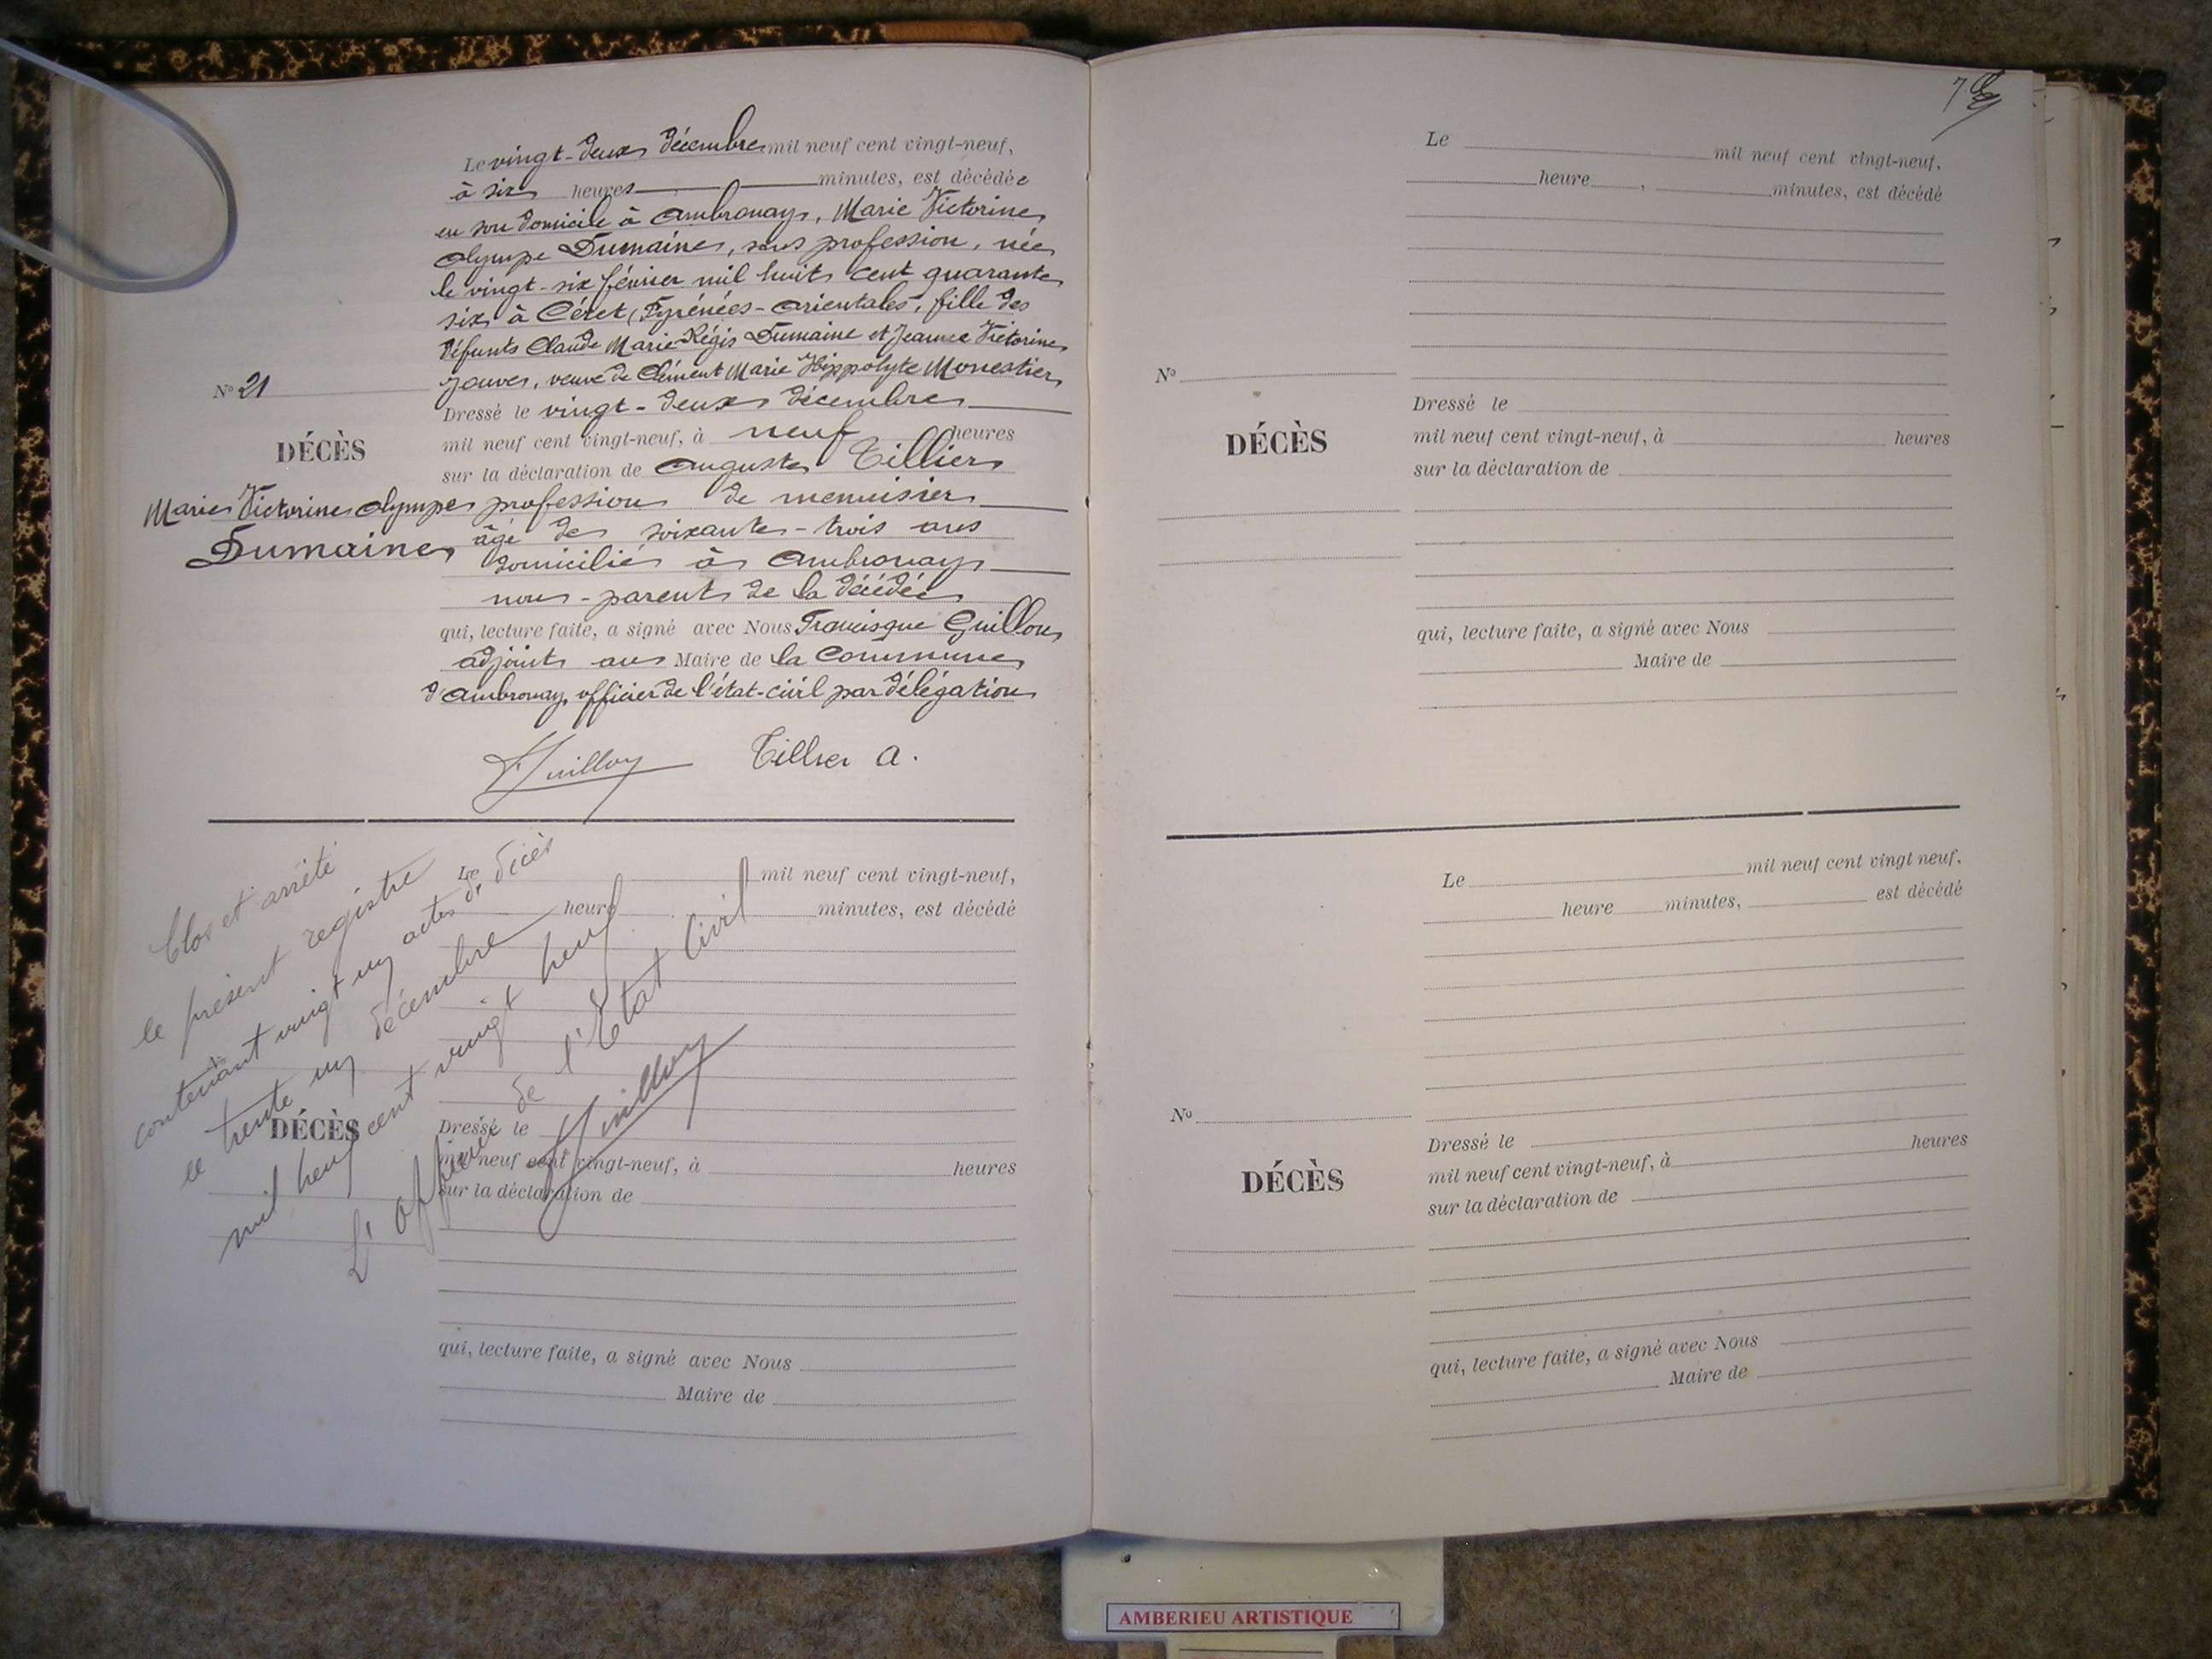 Le vingt-deux décembre mil neuf cent vingt-neuf,
à six heures minutes, est décédée
en son domicile à Ambronay, Marie Victorine
Olympe Dumaine, sans profession, née
le vingt-six février mil huit cent quarante
six à Céret (Pyrénées-Orientales, fille des
défunts Claude Marie-Régis Dumaine et Jeanne Victorine
Jouve, veuve de Clément Marie Hippolyte Monestier
No 21
Dressé le vingt-deux décembre
mil neuf cent vingt-neuf, à neuf heures
DÉCÈS
sur la déclaration de Auguste Tillier
Marie Victorine Olympe
Dumaine
profession de menuisier
âgé de soixante-trois ans
domicilié à Ambronay
non-parent de la décédée
qui, lecture faite, a signé avec Nous Francisque Guillon
adjoint au Maire de la Commune
d'Ambronay, officier de l'état-civil par délégation
Tillier A.
Clos et arrêté
le présent registre
contenant vingt un actes de décès
le trente un décembre
mil neuf cent vingt neuf
L'officier de l'Etat Civil
Le mil neuf cent vingt-neuf,
heure minutes, est décédé
DÉCÈS
Dressé le
mil neuf cent vingt-neuf, à heures
sur la déclaration de
qui, lecture faite, a signé avec Nous
Maire de
Le mil neuf cent vingt-neuf,
heure , minutes, est décédé
No
Dressé le
DÉCÈS
mil neuf cent vingt-neuf, à heures
sur la déclaration de
qui, lecture faite, a signé avec Nous
Maire de
Le mil neuf cent vingt neuf,
heure minutes, est décédé
No
Dressé le
mil neuf cent vingt-neuf, à heures
DÉCÈS
sur la déclaration de
qui, lecture faite, a signé avec Nous
Maire de
AMBERIEU ARTISTIQUE